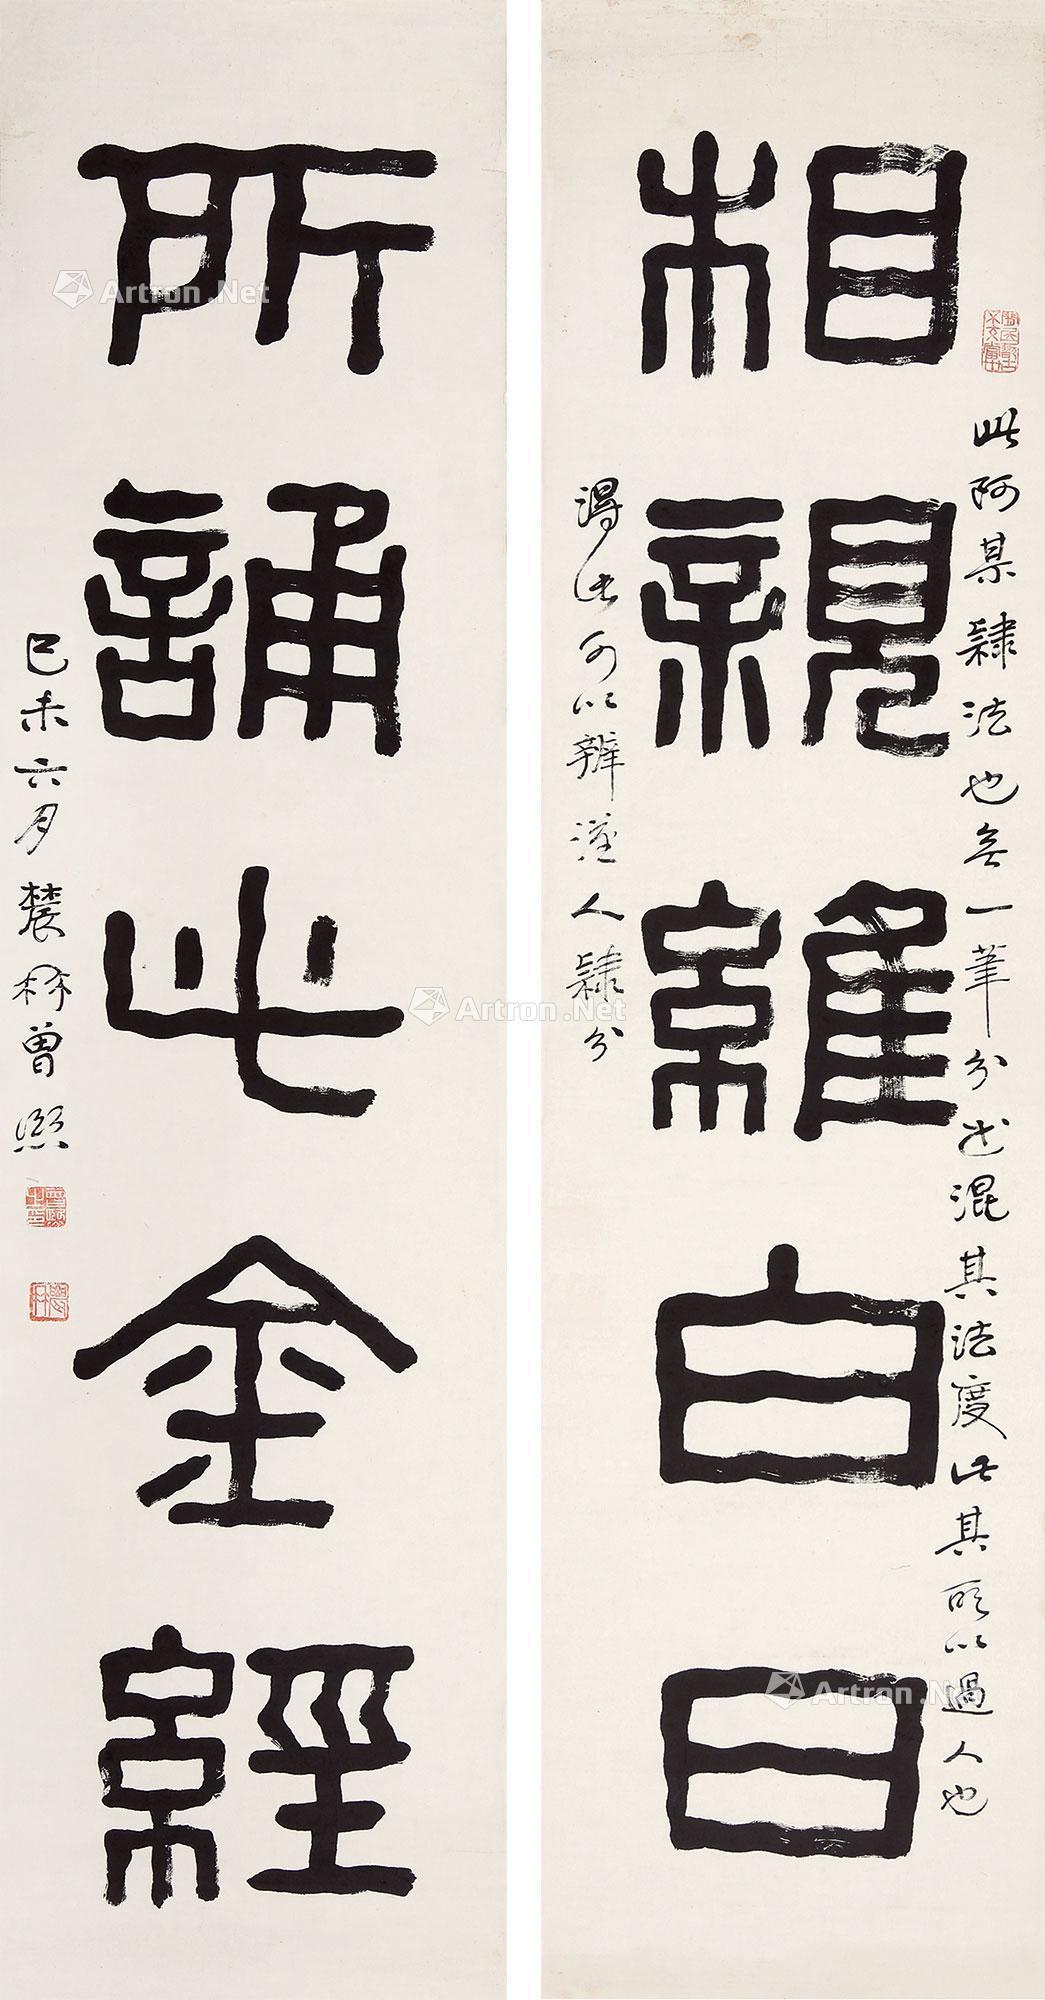 相親維白日
所誦此金經
此阿某隸法也無一筆分也混其法度此其所以過人也
得此可以辨漢人隸分
己未六月農髯曾熙
Artron.Net
Artron.Net
Artron.Net